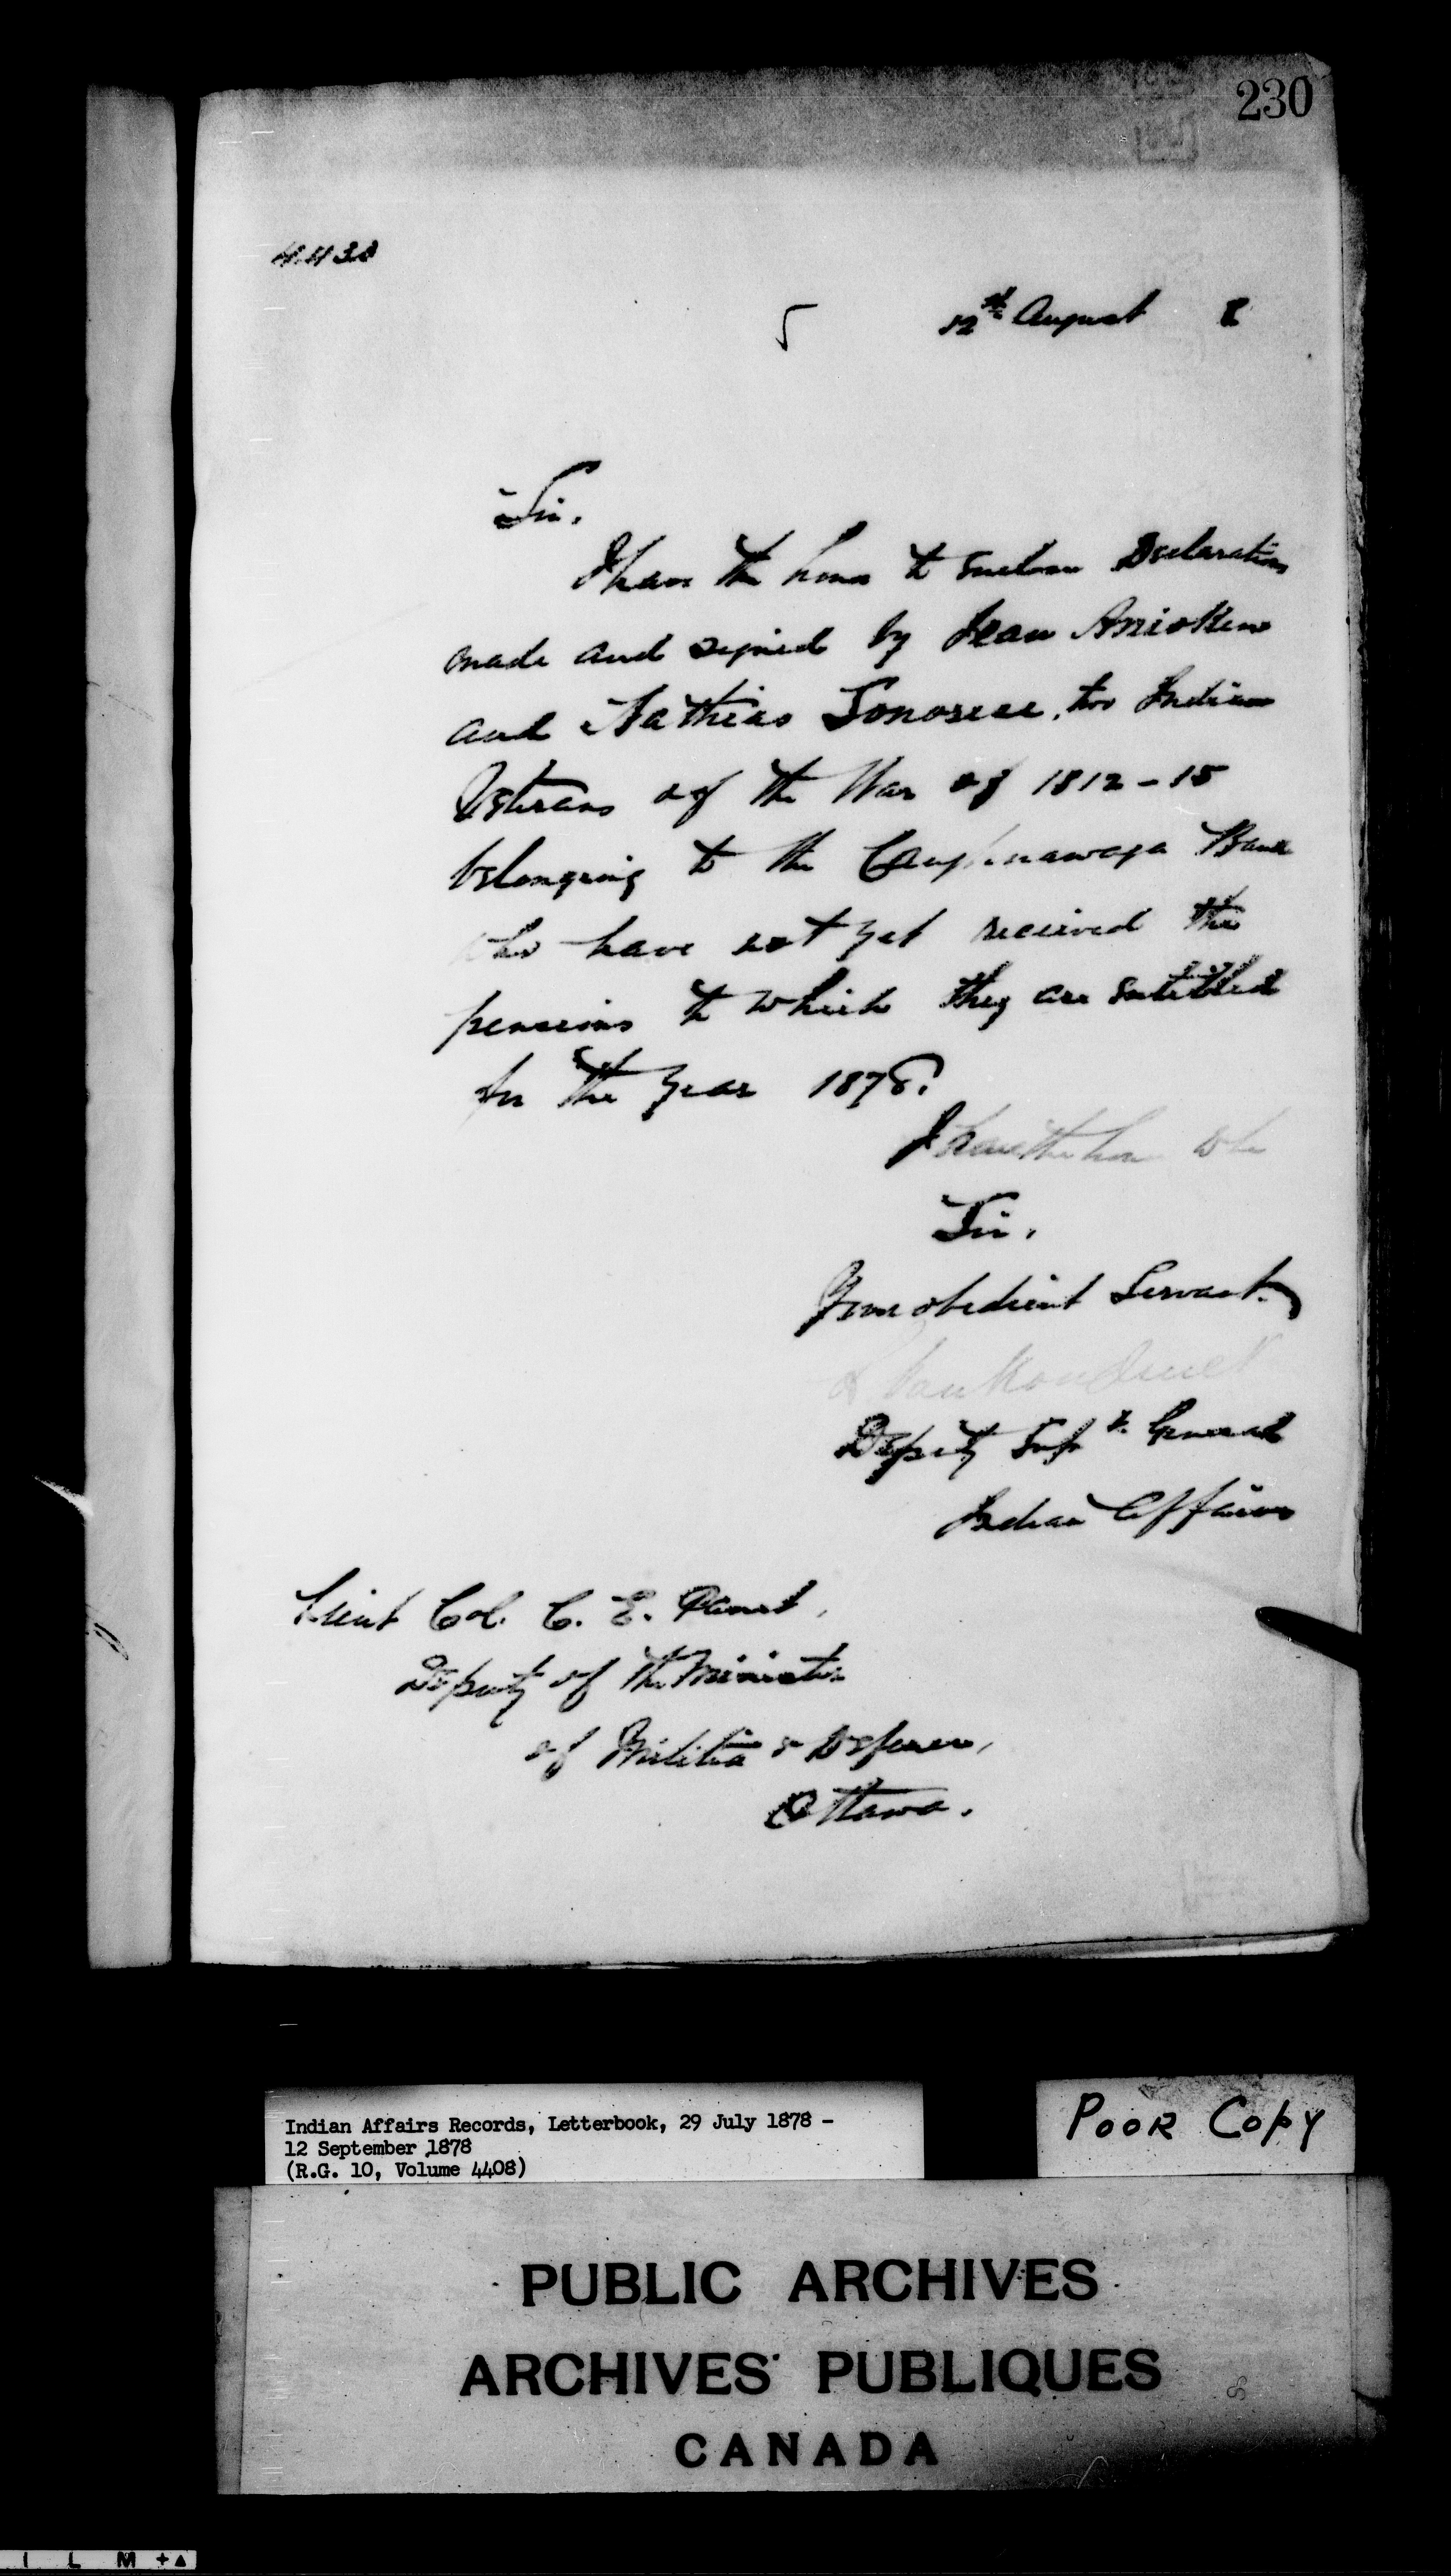 230
12th August 8
Sir,
I have the honor to enclose Declarations
made and signed by Jean
and Mathias two Indian
Veterans of the War of 1812-15
belonging to the Caughnawaga Band
who have not yet received the
pensions to which they are entitled
for the year 1878.
I have the honor to be
Sir,
Your obedient Servant
L Vankoughnet
Deputy Supt. General
Indian Affairs
Lieut Col. C. E. Panet,
Deputy of the Minister
of Militia & Defence,
Ottawa.
Indian Affairs Records, Letterbook, 29 July 1878 -
12 September 1878
(R.G. 10, Volume 4408)
POOR COPY
PUBLIC ARCHIVES
ARCHIVES PUBLIQUES
CANADA